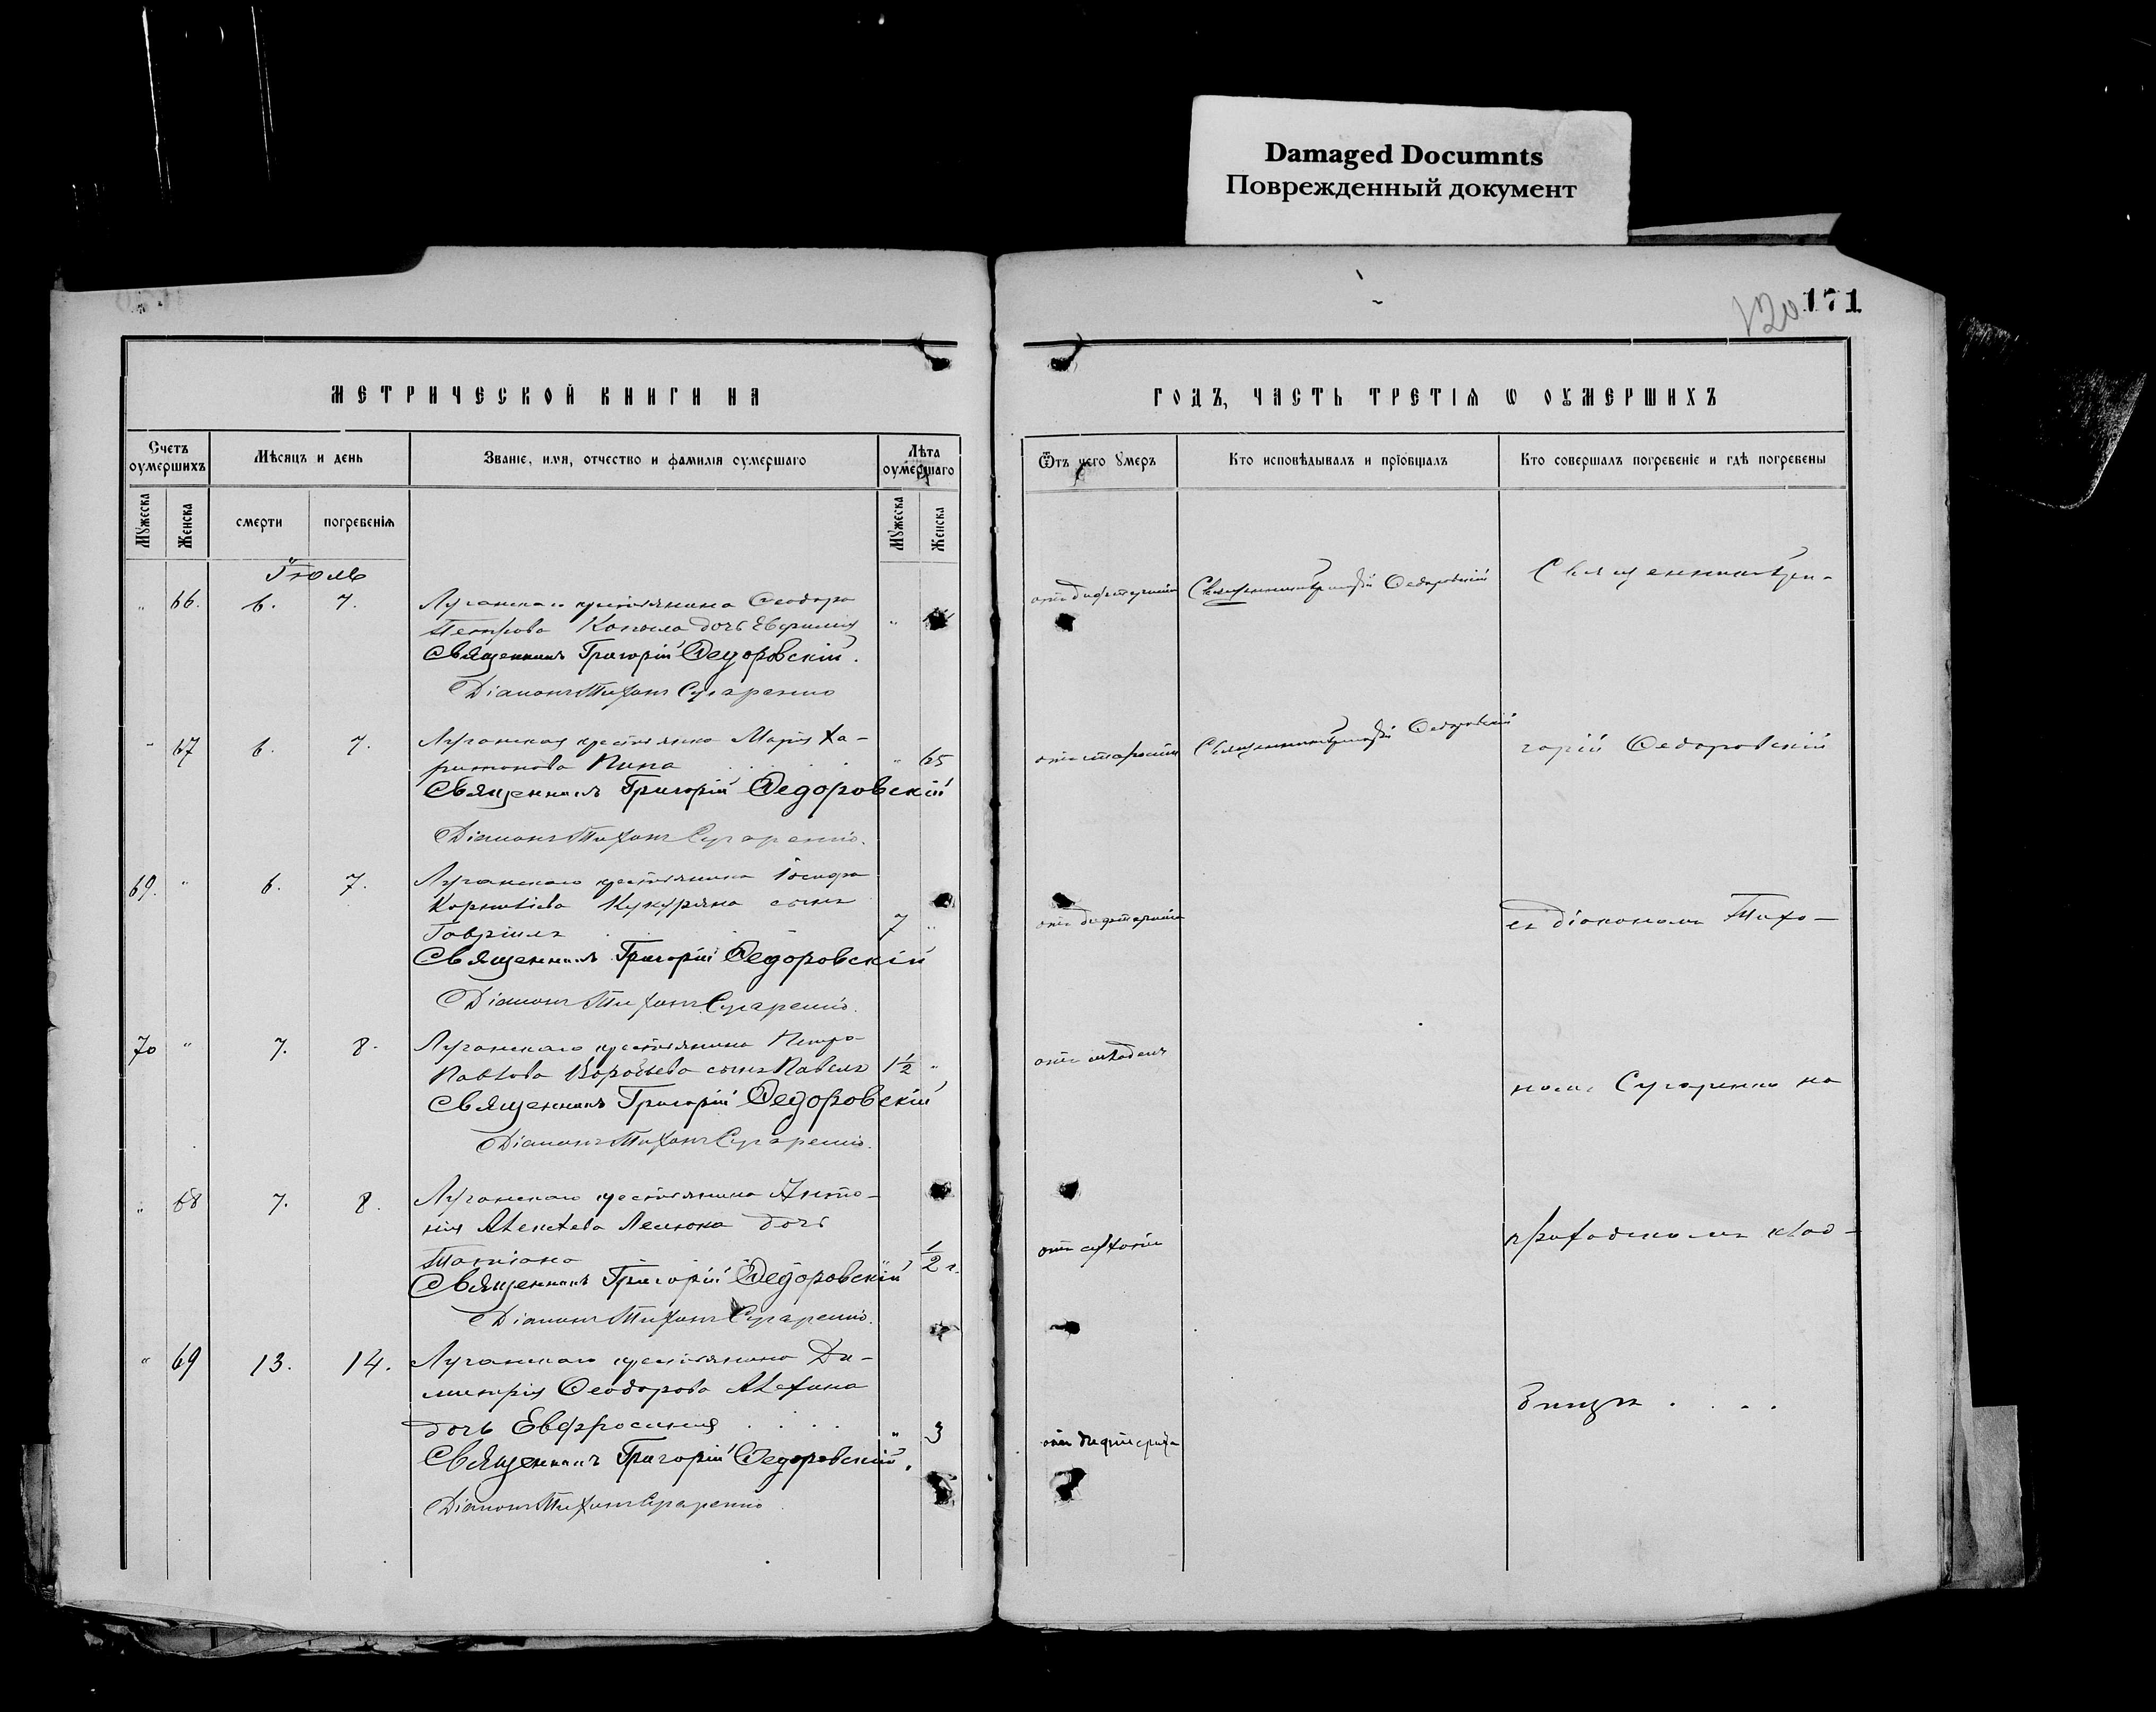 Damaged Documnts
Поврежденный документ
120 171
МЕТРИЧЕСКОЙ КНИГИ НА
ГОДЪ, ЧАСТЬ ТРЕТІѦ Ѡ ОУМЕРШИХЪ
Счетъ оумершихъ
Мѣсяцъ и день
Званіе, имя, отчество и фамилія оумершаго
Лѣта оумершаго
Ѿтъ чего умеръ
Кто исповѣдывалъ и пріобщалъ
Кто совершалъ погребеніе и гдѣ погребены
Мужеска
Женска
смерти
погребенія
Мужеска
Женска
Іюль
" 66. 6. 7. Луганскаго крестьянина Ѳеодора
Петрова дочь Евфимія "
Священникъ Григорій Ѳедоровскій.
Діаконъ Тихонъ Сугаренко
отъ дифтерита
Священникъ Григорій Ѳедоровскій
Священникъ Гри-
" 67 6. 7. Луганская крестьянка Марія Ха-
ритонова " 65
Священникъ Григорій Ѳедоровскій
Діаконъ Тихонъ Сугаренко.
отъ старости
Священникъ Григорій Ѳедоровскій
горій Ѳедоровскій
69. " 6. 7. Луганскаго крестьянина Іосифа
сынъ
Гавріилъ 7 "
Священникъ Григорій Ѳедоровскій
Діаконъ Тихонъ Сугаренко.
отъ дифтерита
съ діакономъ Тихо-
70 " 7. 8. Луганскаго крестьянина Петра
Павлова Воробьева сынъ Павелъ 1½ "
Священникъ Григорій Ѳедоровскій
Діаконъ Тихонъ Сугаренко.
номъ Сугаренко на
" 68 7. 8. Луганскаго крестьянина Анто-
нія Алексѣева дочь
Татіана " ½ г.
Священникъ Григорій Ѳедоровскій
Діаконъ Тихонъ Сугаренко.
приходскомъ клад-
" 69 13. 14. Луганскаго крестьянина Ди-
митрія Ѳеодорова
дочь Евфросинія " 3
Священникъ Григорій Ѳедоровскій.
Діаконъ Тихонъ Сугаренко
отъ дифтерита
бищѣ